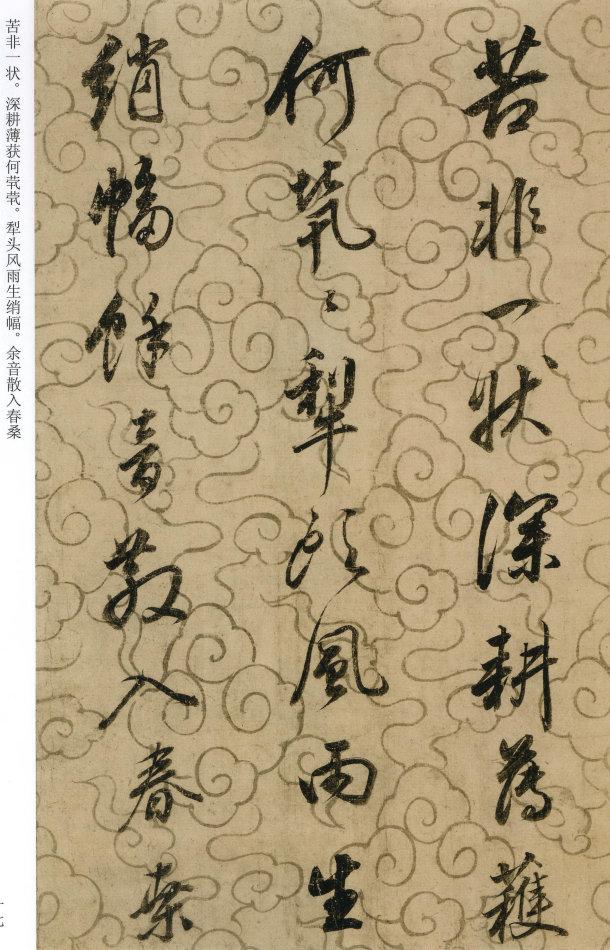 苦非一状深耕薄获
何茕〻犁头風雨生
绡幅馀音散入春桑
苦非一状。深耕薄获何茕茕。犁头风雨生绡幅。余音散入春桑
十七